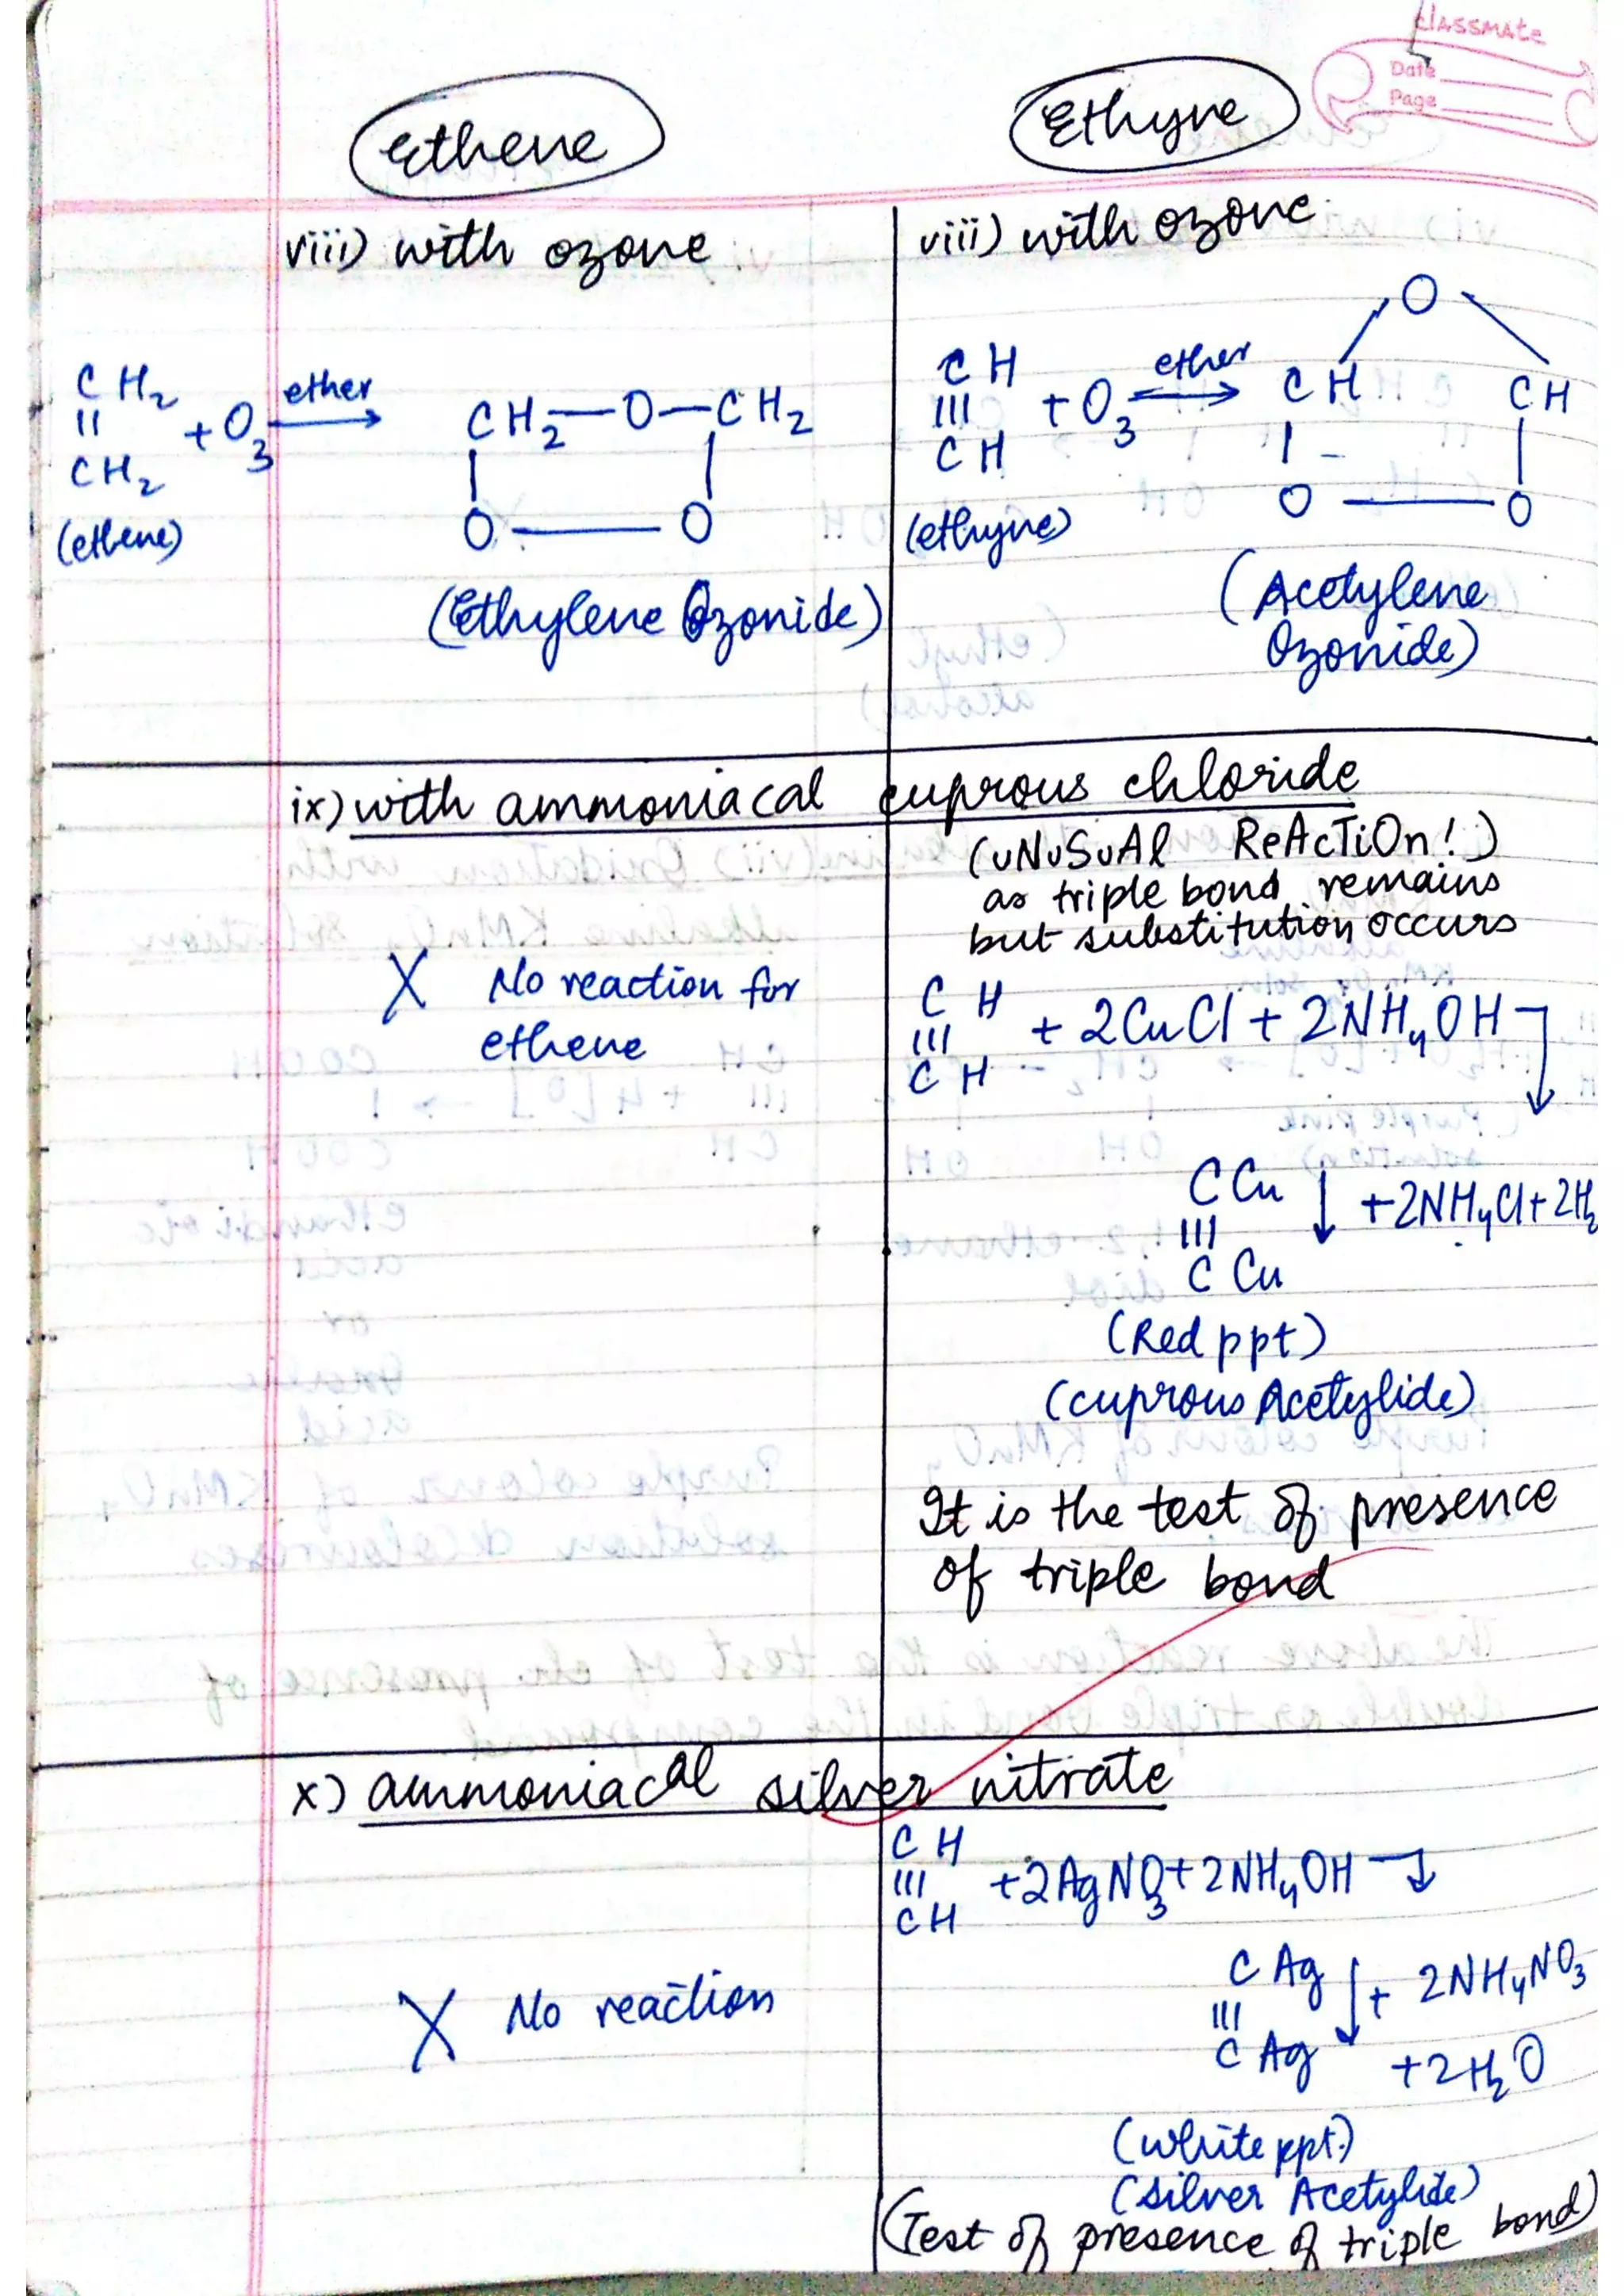 classmate
Date
Page
Ethene
Ethyne
viii) with ozone
CH₂
||
CH₂
+ O₃
ether
CH₂—O—CH₂
O — O
(ethene)
(Ethylene Ozonide)
viii) with ozone
O
CH
|||
CH
+ O₃
ether
CH CH
O — O
(ethyne)
(Acetylene
Ozonide)
ix) with ammoniacal cuprous chloride
X No reaction for
ethene
(uNuSuAl ReAcTiOn!)
as triple bond remains
but substitution occurs
CH
|||
CH
+ 2CuCl + 2NH₄OH
CCu
|||
CCu
↓ +2NH₄Cl+2H₂
(Red ppt)
(cuprous Acetylide)
It is the test of presence
of triple bond
x) ammoniacal silver nitrate
X No reaction
CH
|||
CH
+2AgNO₃+2NH₄OH
CAg
|||
CAg
↓ + 2NH₄NO₃
+2H₂O
(white ppt.)
(silver Acetylide)
(Test of presence of triple bond)